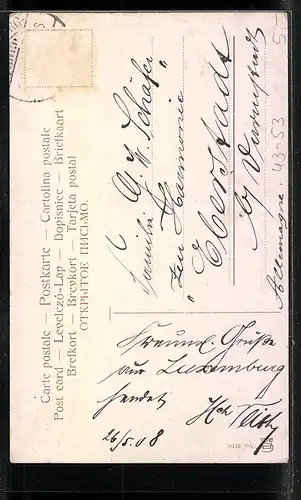 Carte postale — Postkarte — Cartolina postale
Post card — Levelező-Lap — Dopisnice — Briefkaart
Brefkort — Brevkort — Tarjeta postal
ОТКРЫТОЕ ПИСЬМО.
Familie G. W. Schäfer
zur Harmonie
„Eberstadt“
b/ Darmstadt
Allemagne
43-53
Freundl. Grüße
aus Luxemburg
sendet
26/5.08